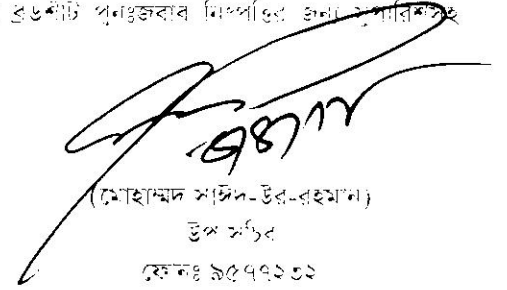 ব্রডশীট পুনঃজবাব নিষ্পত্তির জন্য সুপারিশসহ
(মোহাম্মদ সাঈদ-উর-রহমান)
উপ সচিব
ফোনঃ ৯৫৭৭২৩২